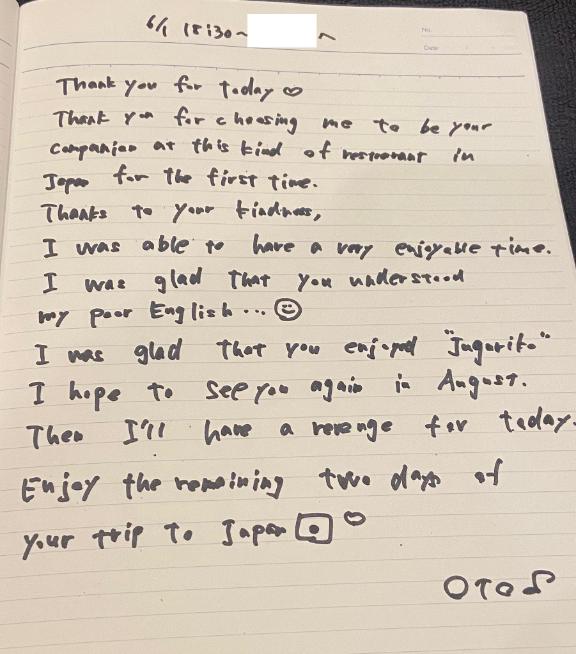 6/1 18:30~
No.
Date
Thank you for today ♡
Thank you for choosing me to be your
companion at this kind of restaurant in
Japan for the first time.
Thanks to your kindness,
I was able to have a very enjoyable time.
I was glad that you understood
my poor English... ☺
I was glad that you enjoyed "Jagariko"
I hope to see you again in August.
Then I'll have a revenge for today.
Enjoy the remaining two days of
your trip to Japan ♡